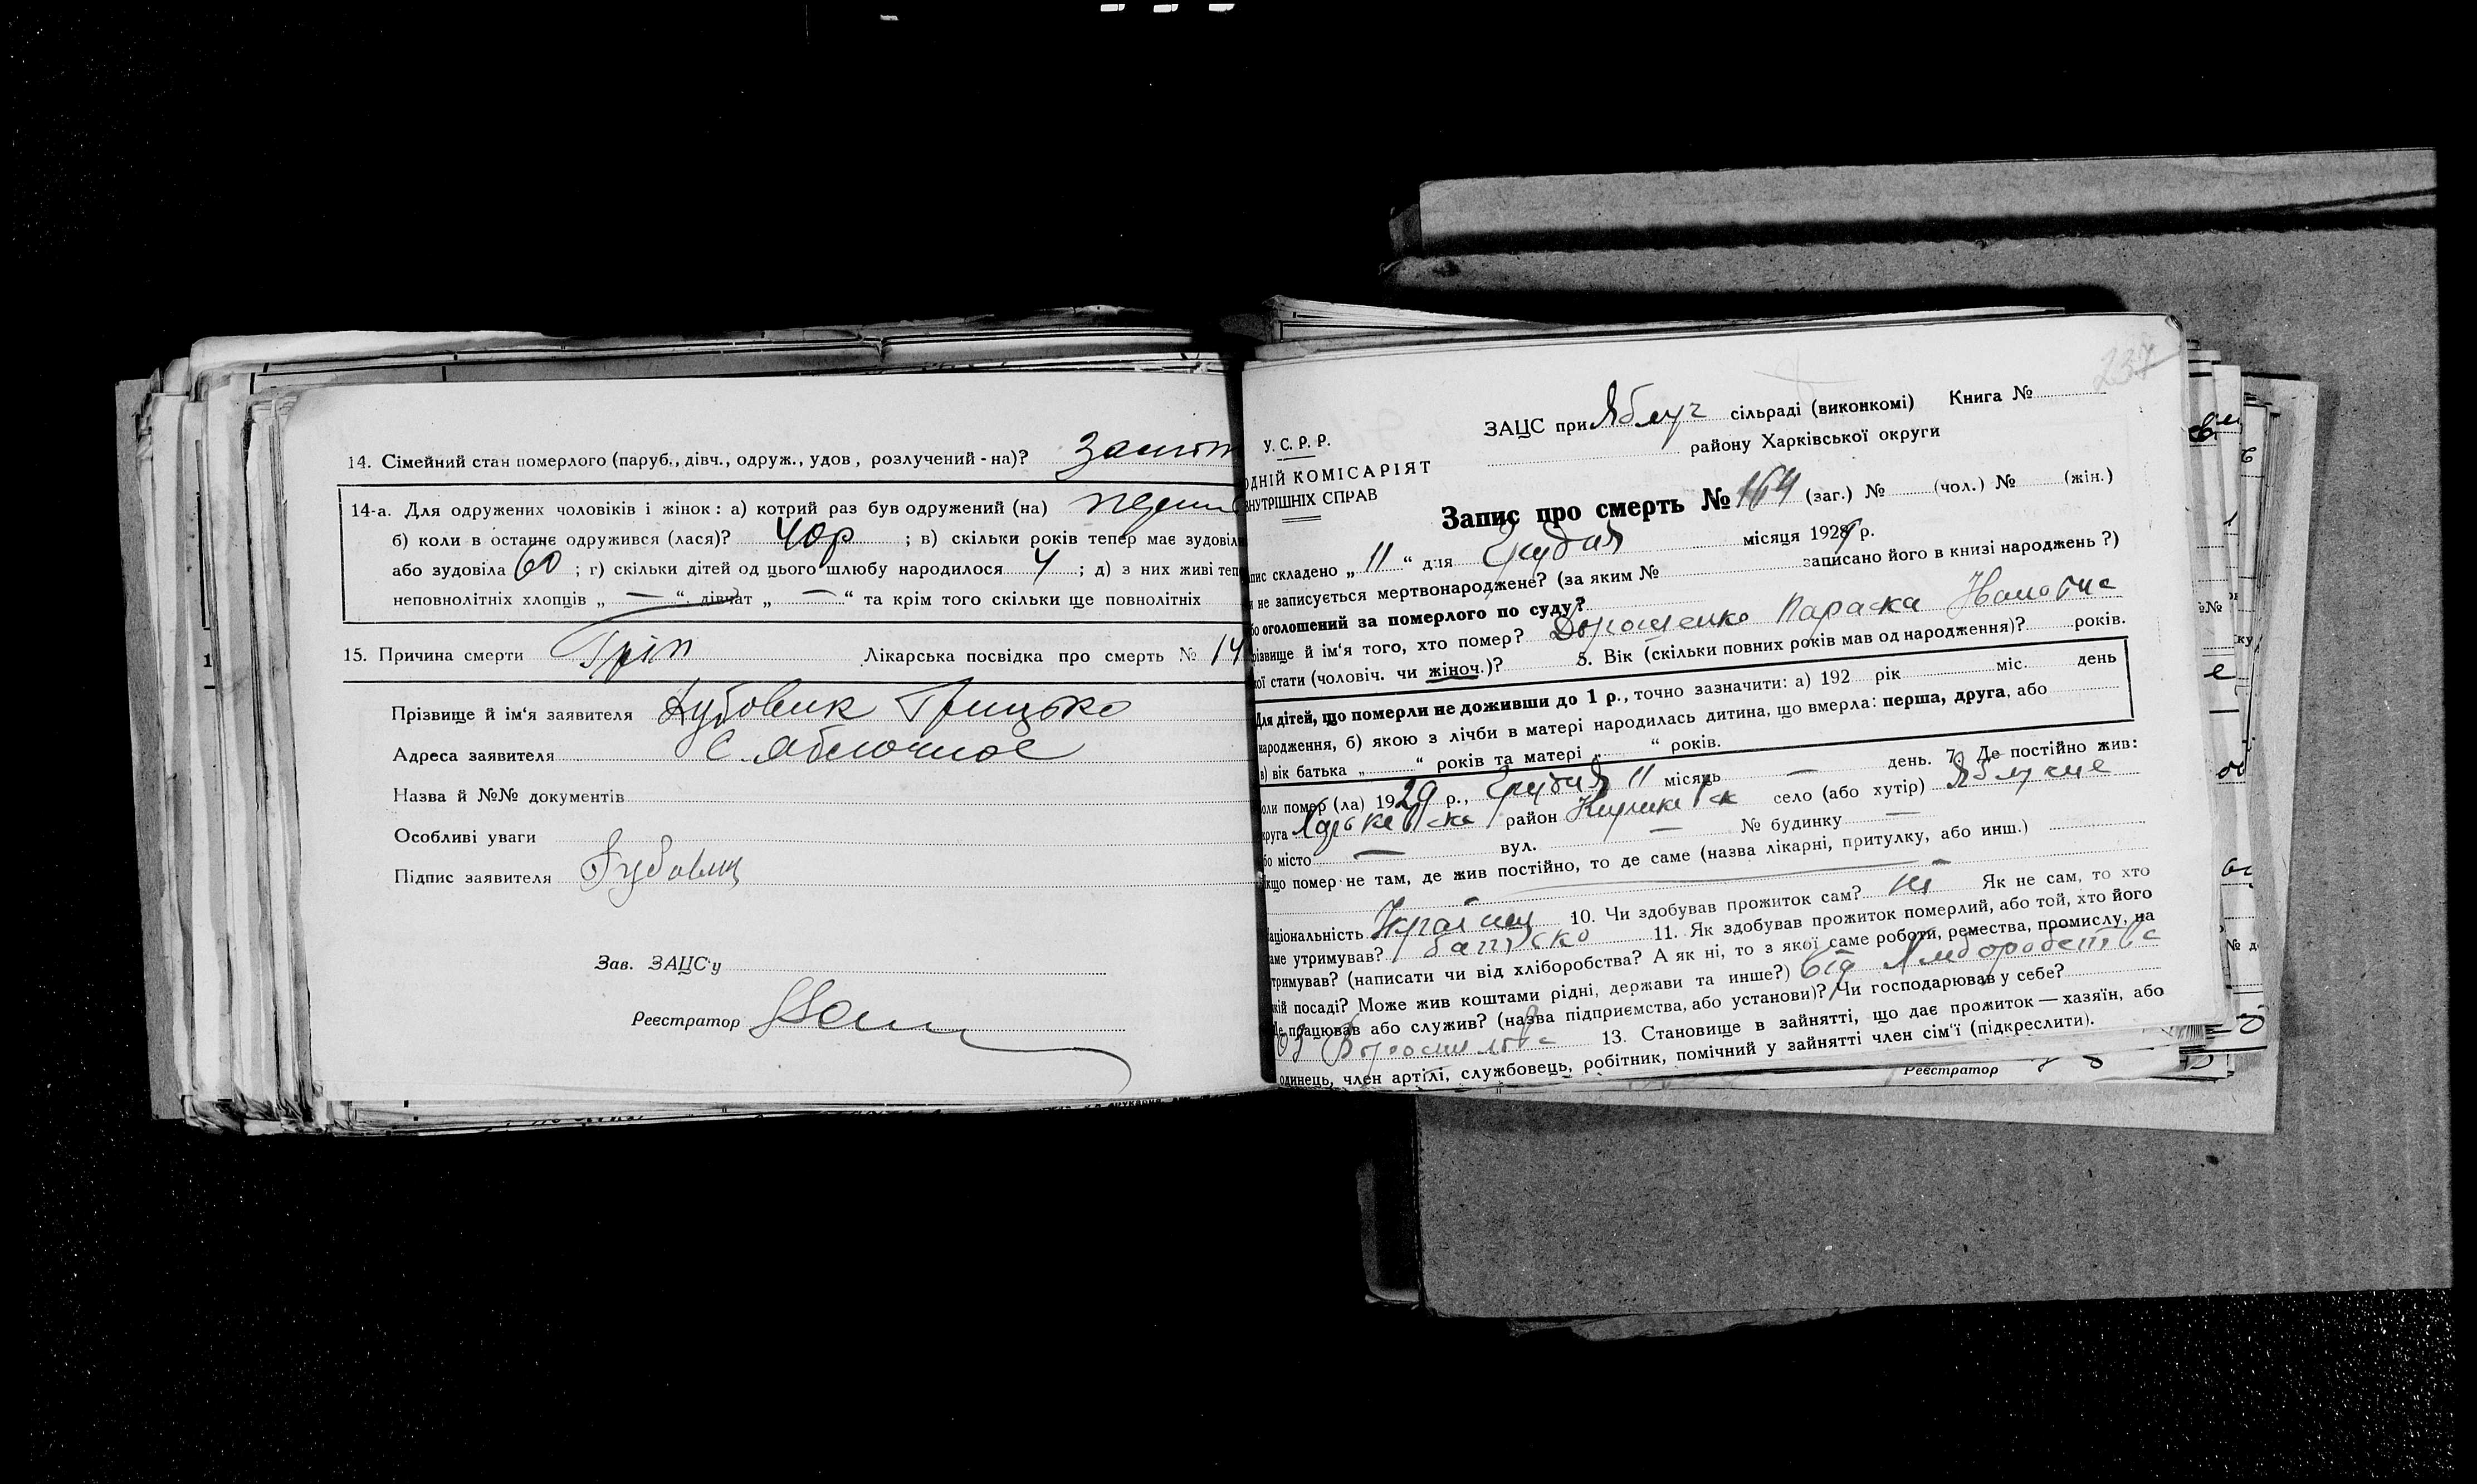 14. Сімейний стан померлого (паруб., дівч., одруж., удов, розлучений-на)?
14-а. Для одружених чоловіків і жінок: а) котрий раз був одружений (на) перш
б) коли в останнє одружився (лася)? 40р ; в) скільки років тепер має
або зудовіла 60 ; г) скільки дітей од цього шлюбу народилося 4 ; д) з них живі теп
неповнолітніх хлопців „ — “ дівчат „ — “ та крім того скільки ще повнолітніх
15. Причина смерти Гріп Лікарська посвідка про смерть № 14
Прізвище й ім‘я заявителя Дубовик Грицько
Адреса заявителя с. Яблочное
Назва й №№ документів
Особливі уваги
Підпис заявителя
Зав. ЗАЦС‘у
Реєстратор
237
ЗАЦС при Яблуч сільраді (виконкомі) Книга №
У. С. Р. Р.
району Харківської округи
ОДНІЙ КОМІСАРІЯТ
ВНУТРІШНІХ СПРАВ
Запис про смерть № 164 (заг.) № (чол.) № (жін.)
пис складено „ 11 “ дня Грудня місяця 1929 р.
и не записується мертвонароджене? (за яким № записано його в книзі народжень ?)
бо оголошений за померлого по суду?
різвище й ім‘я того, хто помер? Дорошенко Параска
кої стати (чоловіч. чи жіноч.)? 5. Вік (скільки повних років мав од народження)? років.
Для дітей, що померли не доживши до 1 р., точно зазначити: а) 192 рік міс. день
народження, б) якою з лічби в матері народилась дитина, що вмерла: перша, друга, або
в) вік батька „ “ років та матері „ “ років.
оли помер (ла) 1929 р., Грудня 11 місяць — день. 7. Де постійно жив:
круга Харьківска район село (або хутір) Яблучне
бо місто — вул. — № будинку —
кщо помер не там, де жив постійно, то де саме (назва лікарні, притулку, або инш.)
аціональність Україн 10. Чи здобував прожиток сам? ні Як не сам, то хто
аме утримував? батько 11. Як здобував прожиток померлий, або той, хто його
тримував? (написати чи від хліборобства? А як ні, то з якої саме роботи, ремества, промислу, на
кій посаді? Може жив коштами рідні, держави та инше?) від хліборобства
Де працював або служив? (назва підприємства, або установи)? Чи господарював у себе?
13. Становище в зайнятті, що дає прожиток — хазяїн, або
одинець, член артілі, службовець, робітник, помічний у зайнятті член сім‘ї (підкреслити).
Реєстратор